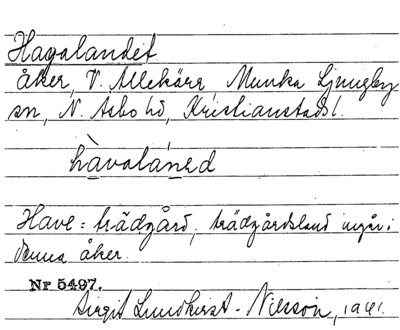 Hagalandet
åker, V. Allekärr, Munka Ljungby
sn, N. Åsbo hd, Kristianstads l.
hàvalàned
Have = trädgård, trädgårdsland ingår i
denna åker.
Nr 5497.
Birgit Lundkvist-Nilsson, 1941.